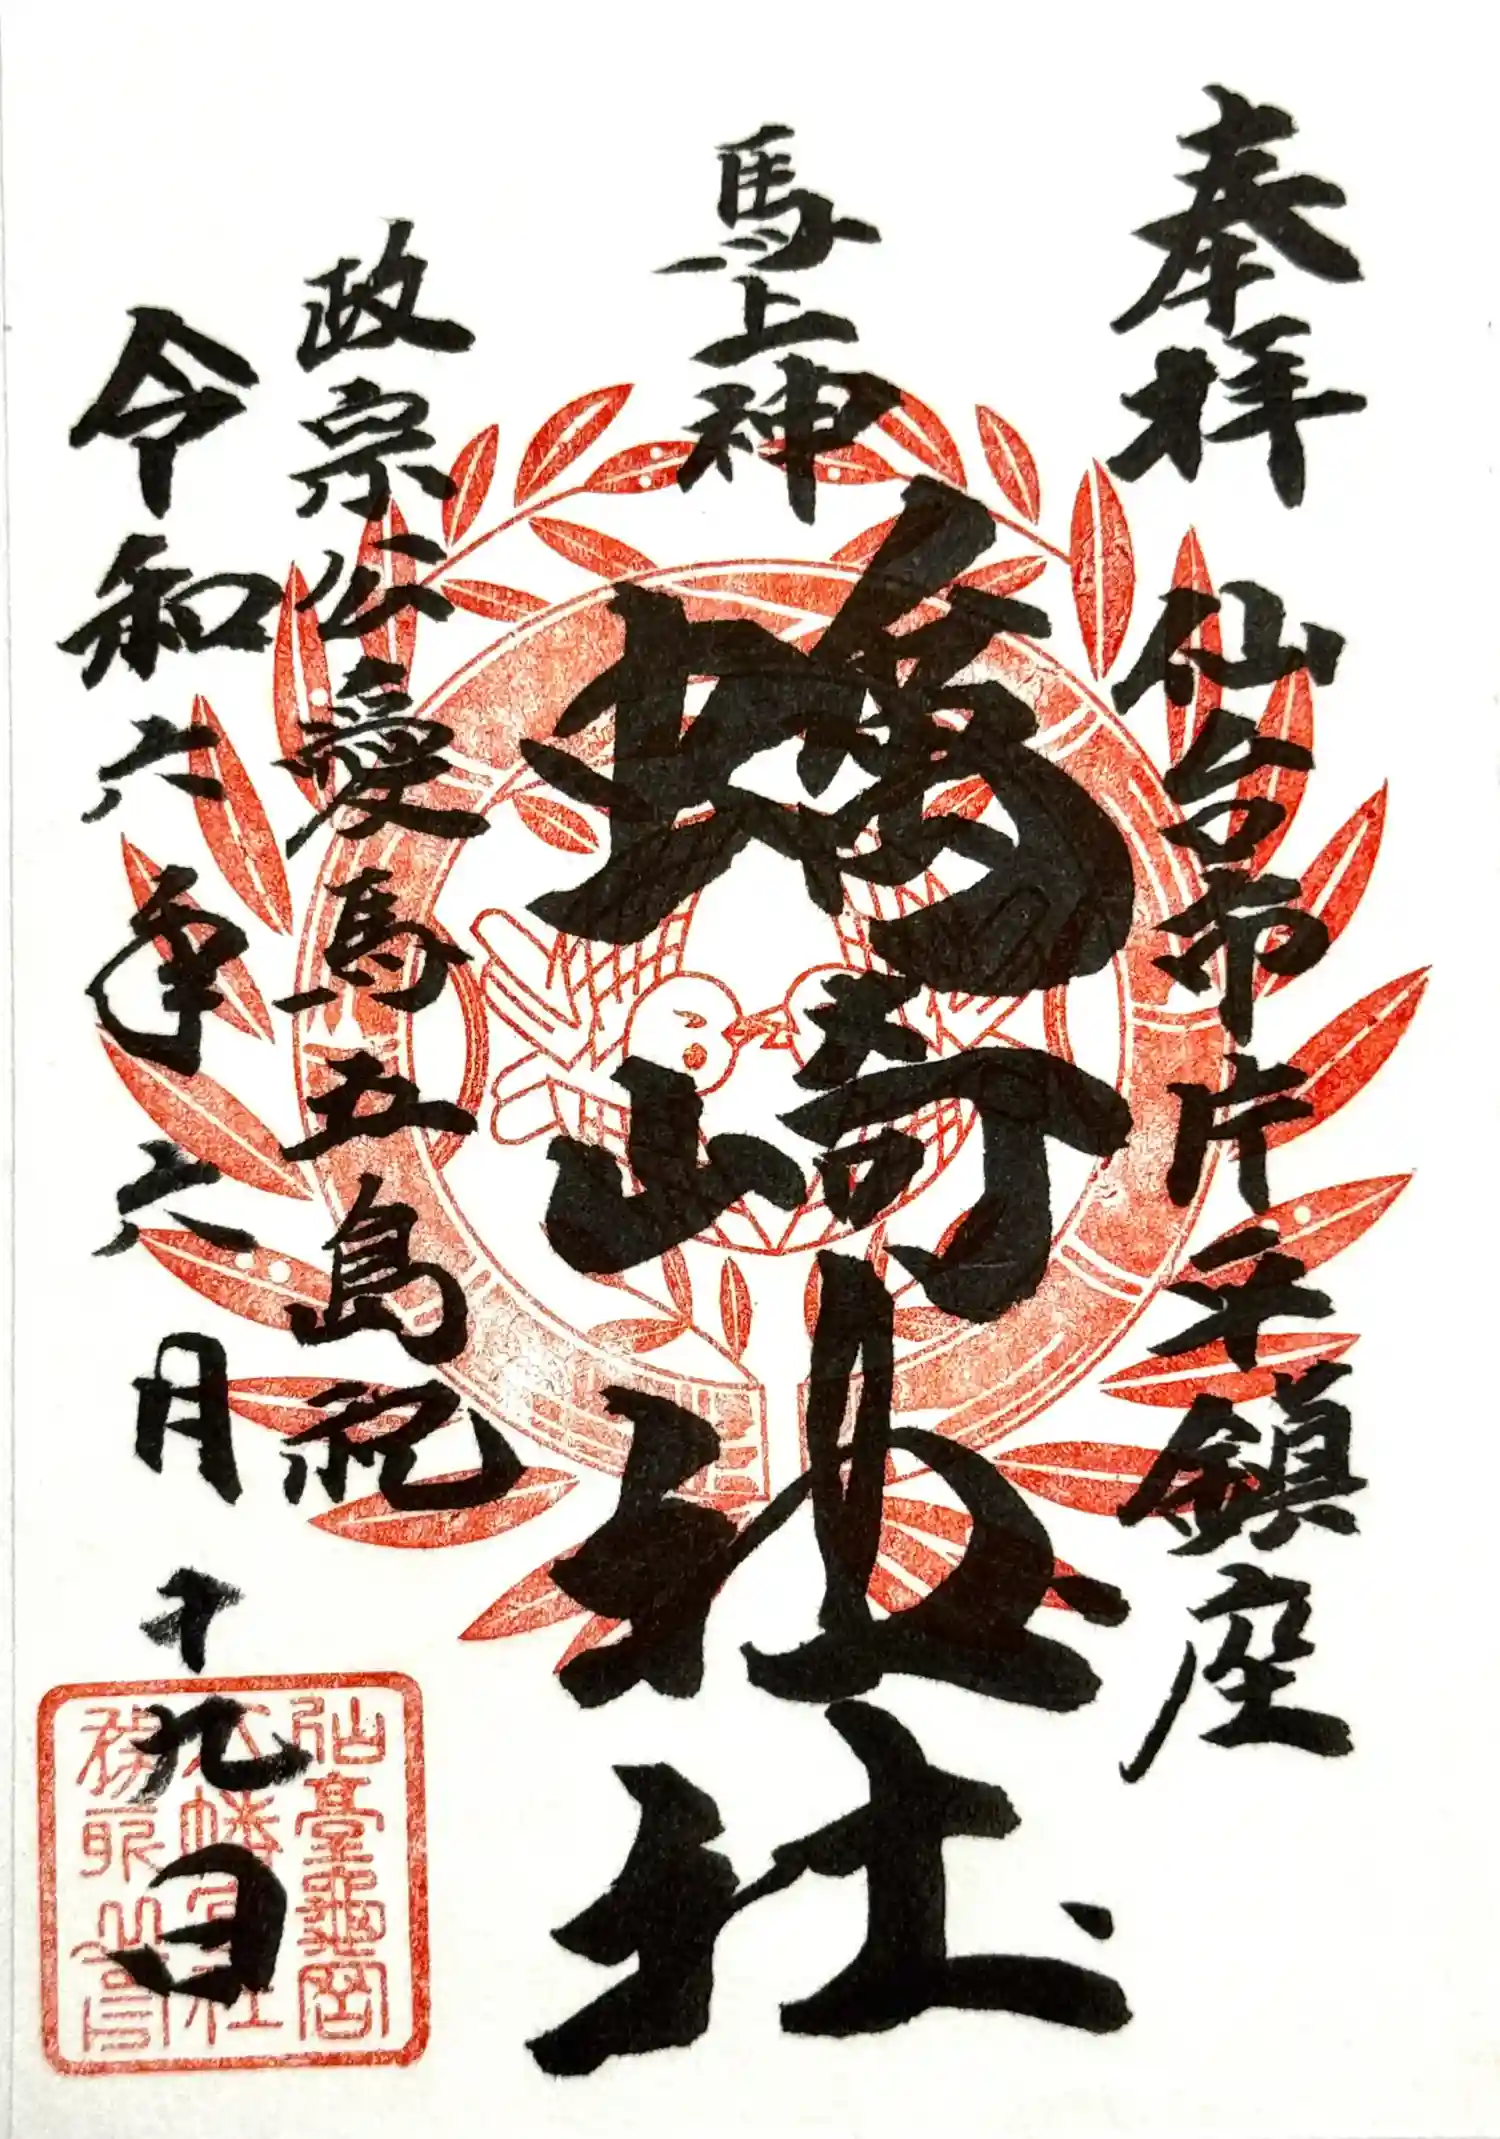 奉拝 仙台市片平鎮座
馬上神
蠣崎神社
政宗公愛馬五島祀
令和六年六月十九日
仙臺龜岡
八幡宮社
務所